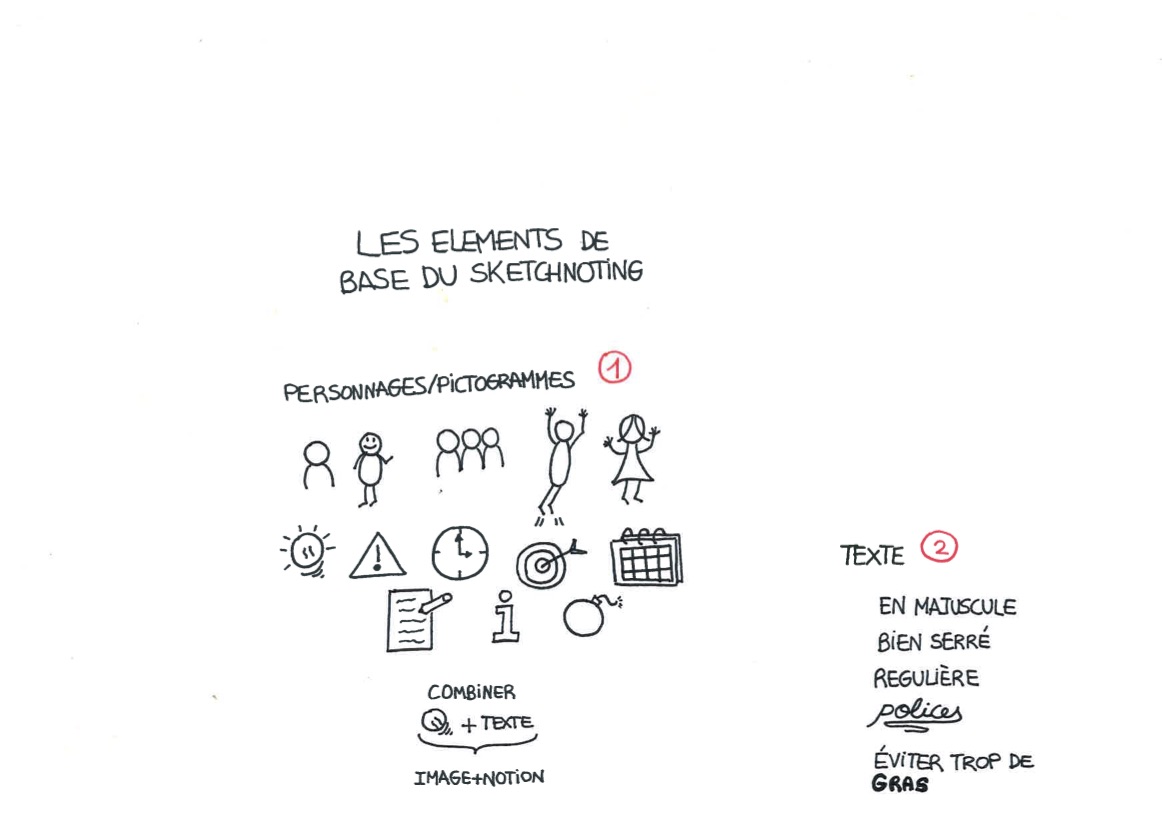 LES ELEMENTS DE
BASE DU SKETCHNOTING
PERSONNAGES/PICTOGRAMMES 1
COMBINER
+ TEXTE
IMAGE+NOTION
TEXTE 2
EN MAJUSCULE
BIEN SERRÉ
REGULIÈRE
polices
ÉVITER TROP DE
GRAS